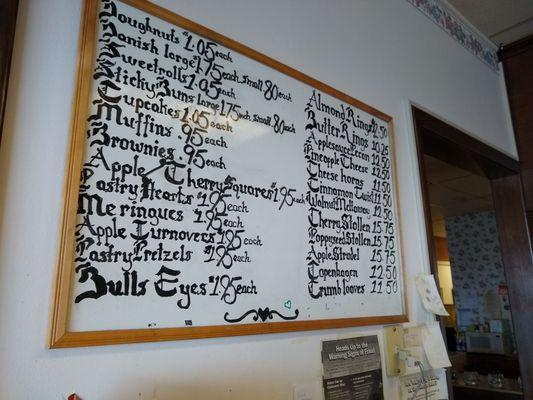 Doughnuts $1.05 each
Danish large 1.75 each, small .80 each
Sweetrolls 1.05 each
Sticky Buns large 1.75 each, small .80 each
Cupcakes 1.05 each
Muffins .95 each
Brownies .95 each
Apple / Cherry Squares $1.95 each
Pastry Hearts $1.95 each
Meringues 1.95 each
Apple Turnovers 1.95 each
Pastry Pretzels 1.95 each
Bulls Eyes $1.95 each
Almond Rings $12.50
Butter Rings 10.25
Applesauce Pecon 12.50
Pineapple Cheese 12.50
Cheese horns 11.50
Cinnamon Twist 11.50
Walnut Meltaway 12.50
Cherry Stollen 15.75
Poppyseed Stollen 15.75
Apple Strudel 15.75
Copenhagen 12.50
Crumb loaves 11.50
Heads Up to the
Warning Signs of Fraud